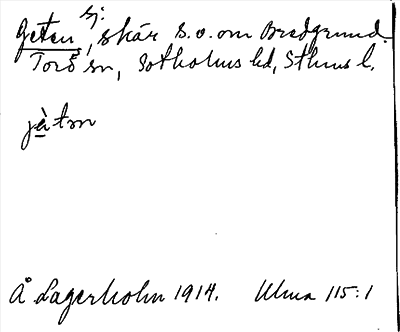 sj:
Geten, skär s.o.om Bredgrund.
Torö sn, Sotholms hd, Sthms l.
jètn
Å Lagerholm 1914. Ulma 115:1